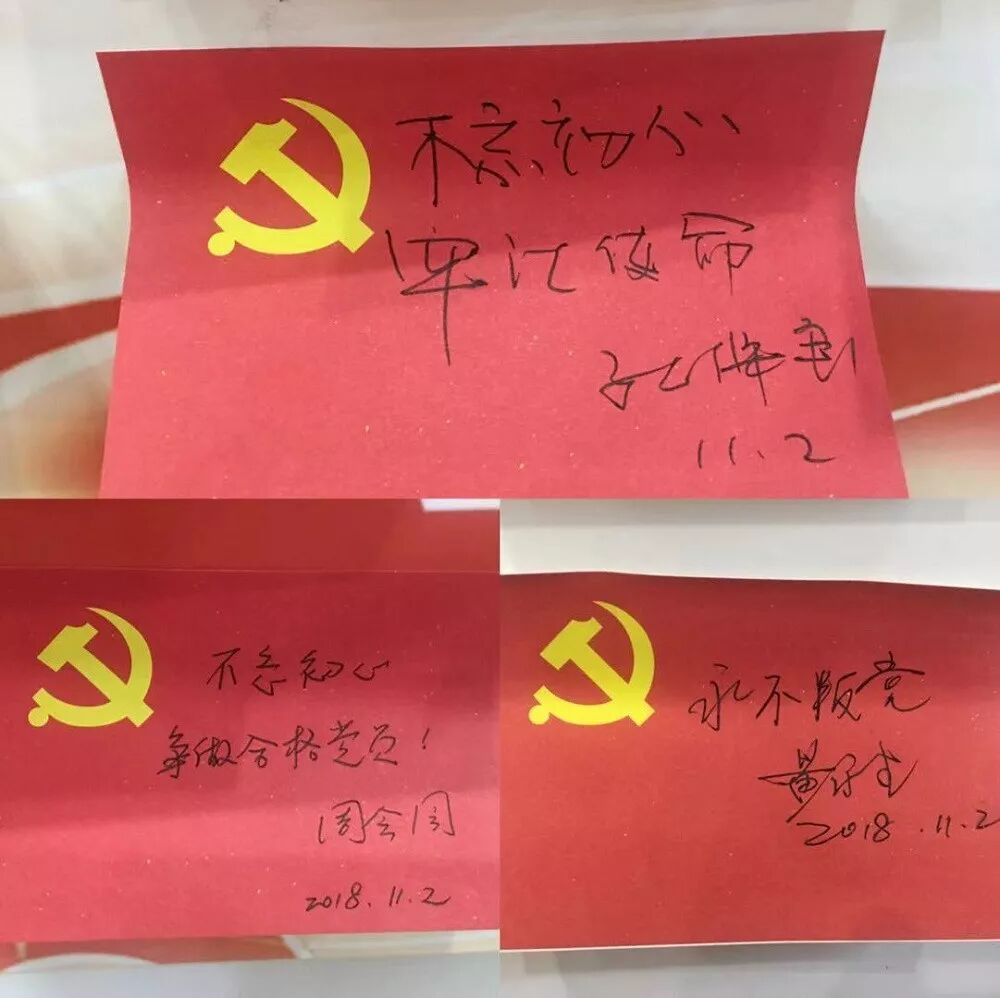 不忘初心
牢记使命
11.2
不忘初心
争做合格党员！
周会同
2018.11.2
永不叛党
2018.11.2